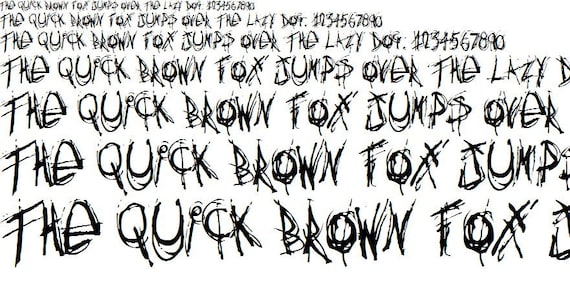 THE QUICK BROWN FOX JUMPS OVER THE LAZY DOG. 1234567890
THE QUICK BROWN FOX JUMPS OVER THE LAZY DOG. 1234567890
THE QUICK BROWN FOX JUMPS OVER THE LAZY DOG. 1234567890
THE QUICK BROWN FOX JUMPS OVER THE LAZY D
THE QUICK BROWN FOX JUMPS OVER
THE QUICK BROWN FOX JUMPS
THE QUICK BROWN FOX J